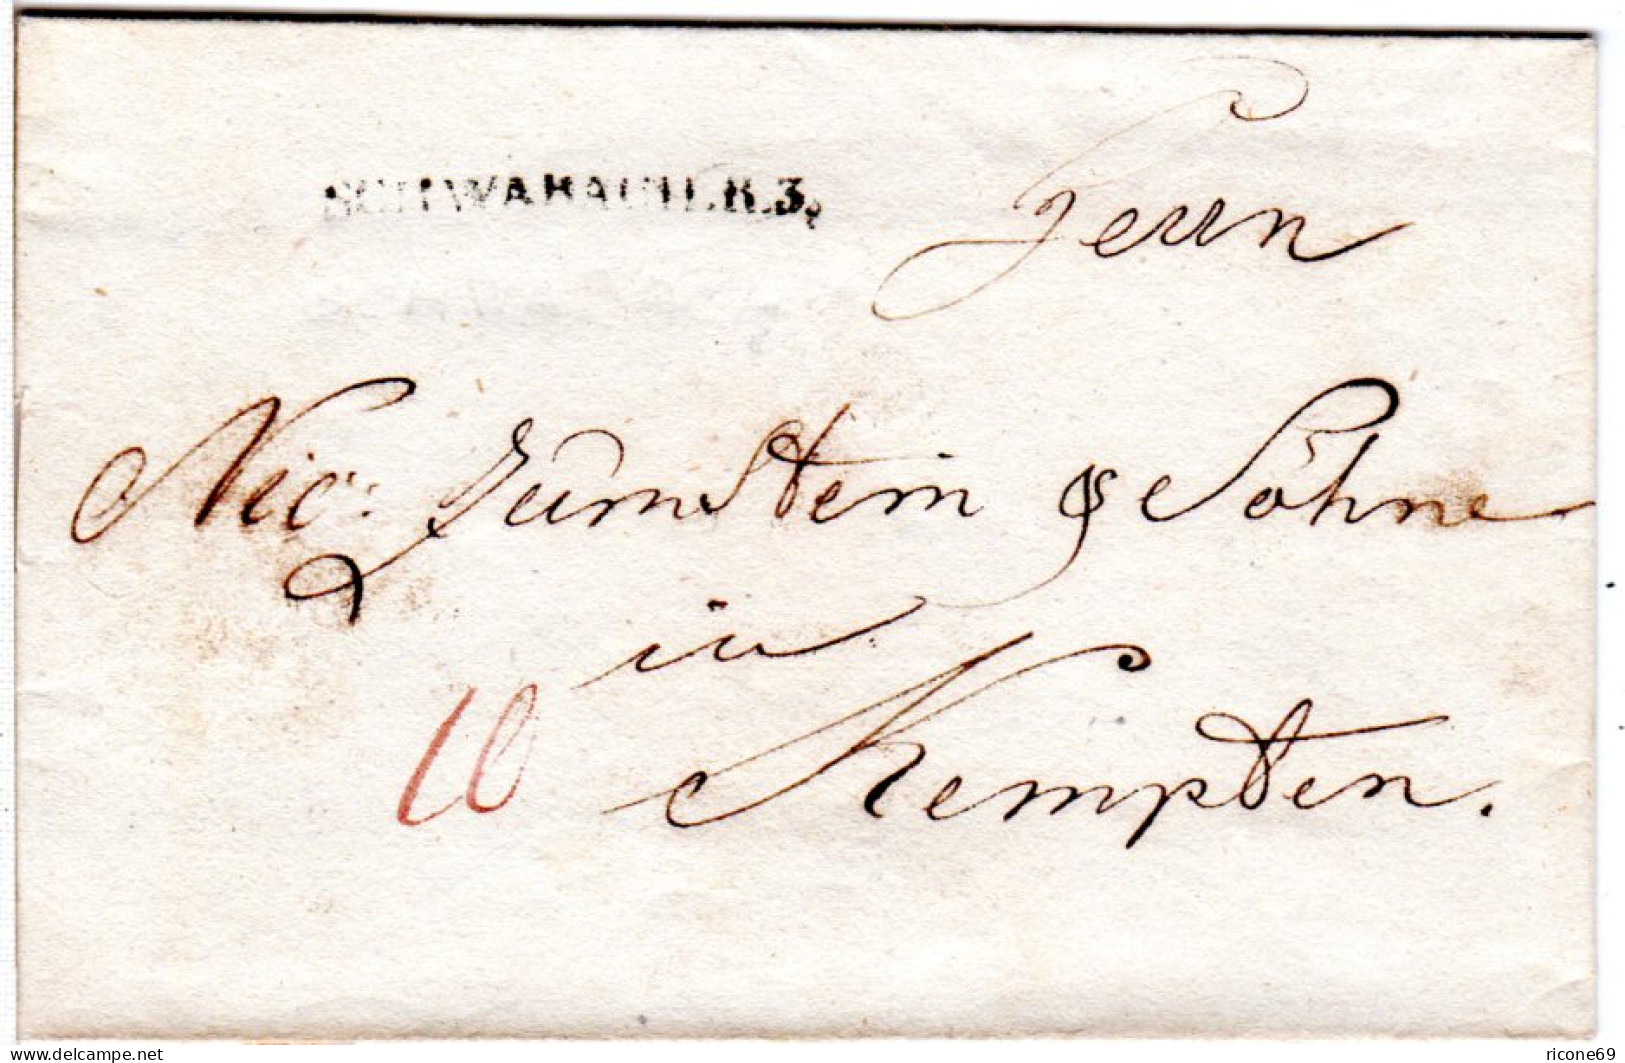 SCHWABACH.R.3.
Herrn
Nic: Zumstein & Söhne
in
10
Kempten.
www.delcampe.net
ricone69